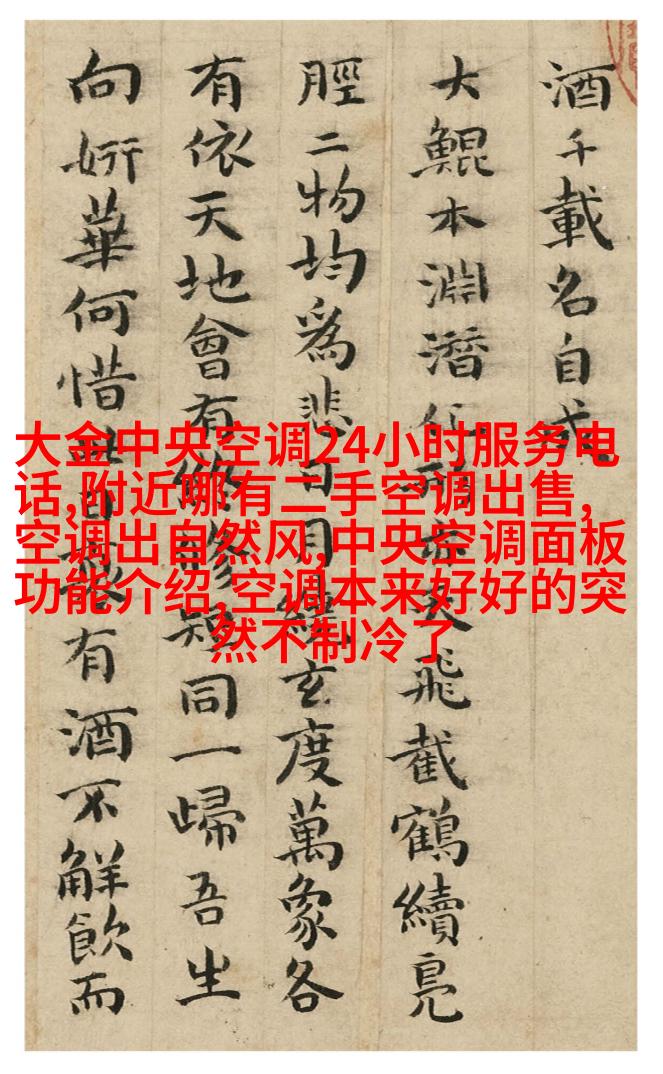 酒千載名自
大鯤本淵潜飛截鶴續鳧
脛二物均為悲日月纏玄度萬象各
有依天地會有終脩短同一歸吾生
向妍華何惜有酒不解飲而
大金中央空调24小时服务电
话,附近哪有二手空调出售,
空调出自然风,中央空调面板
功能介绍,空调本来好好的突
然不制冷了